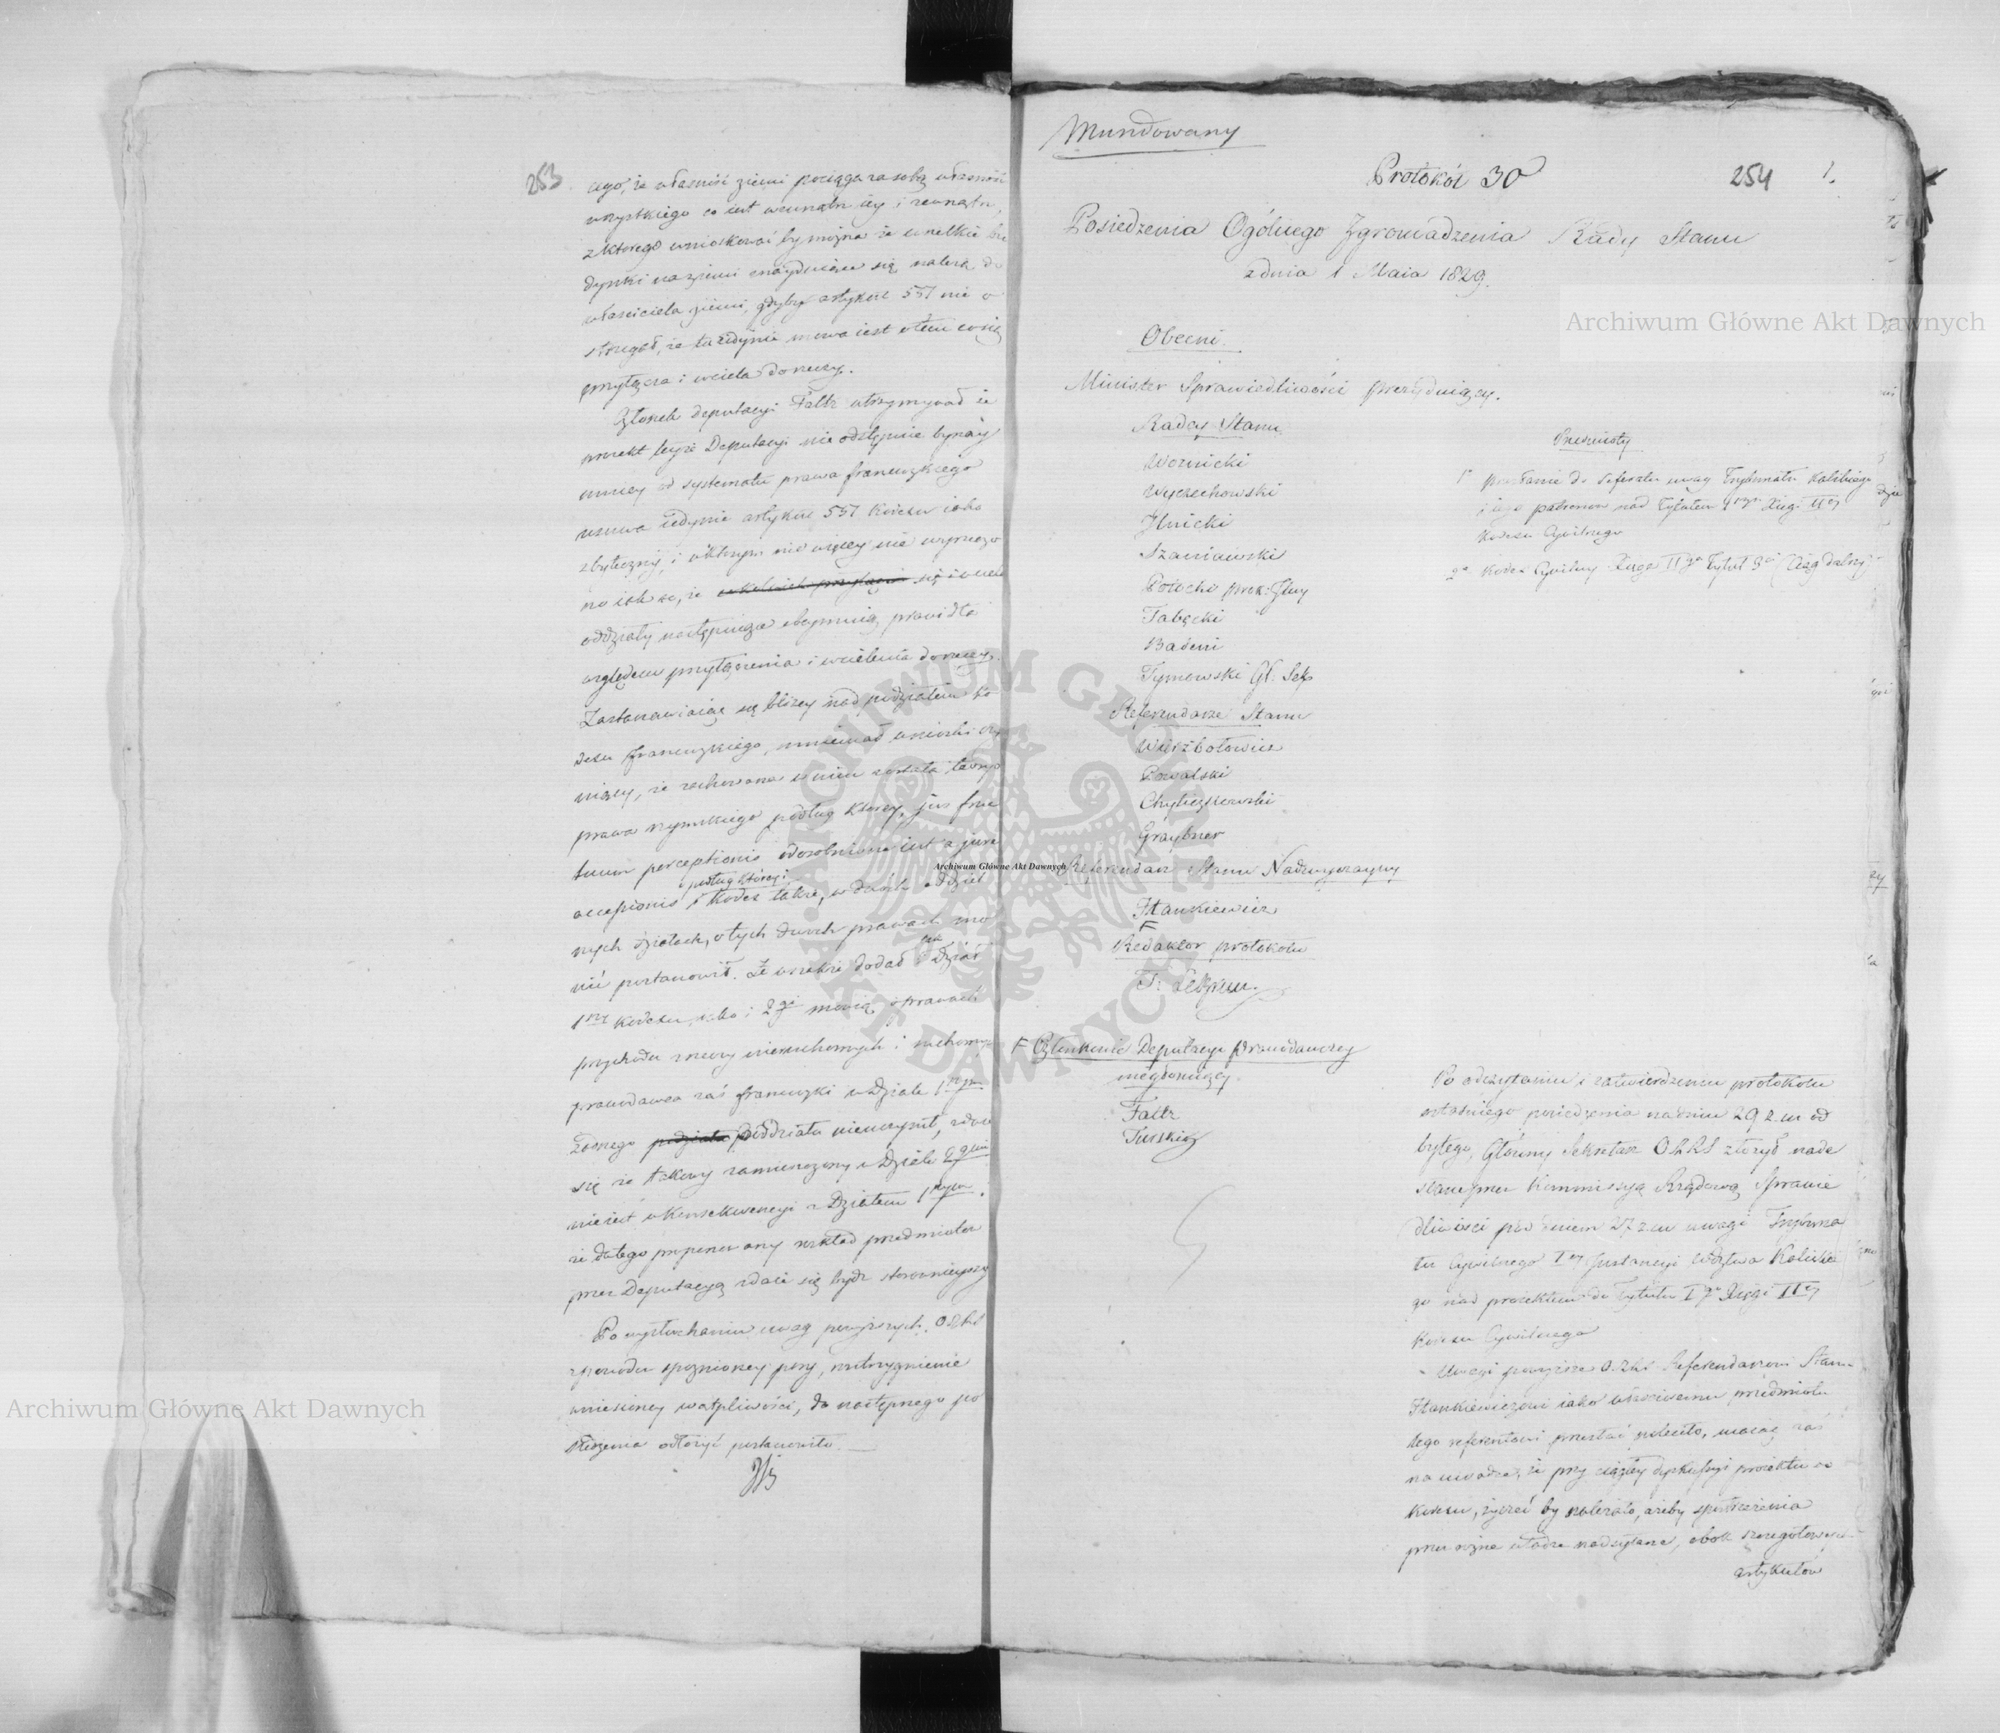 253.
cego, że własność ziemi pociąga za sobą własność
wszystkiego co iest wewnątrz iey i zewnątrz,
z ktorego wnioskować by można że wszelkie bu
dynki na ziemi znayduiące się należą do
właściciela ziemi, gdyby artykuł 551 nie o
strzegał, że tu iedynie mowa iest o tém co się
przyłącza i wciela do rzeczy.
Członek deputacyi Faltz utrzymywał że
proiekt teyże Deputacyi nie odstępuie bynay
mniey od systematu prawa francuzkiego
usuwa iedynie artykuł 551 Kodexu iako
zbyteczny, i w ktorym nic więcey nie wyrzeczo
no iak to, że się i wciela
oddziały następuiące obeymuią prawidła
względem przyłączenia i wcielenia do rzeczy.
Zastanawiaiąc się bliżey nad podziałem ko
dexu francuzkiego, mniemał
że zachowana w nim została
prawa rzymskiego podług ktorey, jus fruc
tuum perceptionis odosobnione iest a jure
podług którey i
accessionis i Kodex także, w dwóch oddziel
nych działach, o tych dwoch prawach mo
wić postanowił. Że wszakże dodał Dział
1szy Kodexu, albo i 2gi mowią o prawach
przychodu rzeczy nieruchomych i ruchomych
prawodawca zaś francuzki w Dziale 1szym
żadnego poddziału nieuczynił, zdaie
się że takowy zamieszczony w Dziale 2gim
nie iest w konsekwencyi z Działem 1szym,
że dla tego proponowany rozkład przedmiotow
przez Deputacyą zdaie się bydź stosownieyszy
Po wysłuchaniu uwag powyższych, OZRS
z powodu spoznioney pory, rozstrzygnienie
wniesioney wątpliwości, do następnego po
siedzenia odłożyć postanowiło.
Mundowany
Protokół 30
254 1.
Posiedzenia Ogólnego Zgromadzenia Rady Stanu
z dnia 1 Maia 1829.
Obecni.
Minister Sprawiedliwości prezyduiący.
Radcy Stanu
Woznicki
Wyczechowski
Ilnicki
Szaniawski
Potocki prok: Jlny
Tabęcki
Badeni
Tymowski Gł. Sekr
Referendarze Stanu
Wierzbołowicz
Powalski
Chyliczkowski
Graybner
Referendarz Stanu Nadzwyczayny
Stankiewicz
F
Redaktor protokołu
F Członkowie Deputacyi Prawodawczey
Faltz
Turski
Przedmioty
1o przesłanie do referatu uwag Trybunału Kaliskiego
i iego patronow nad Tytułem 1szym Xięgi IIey
Kodexu Cywilnego
2o Kodex Cywilny Xięga IIga Tytuł 3ci (Ciąg dalszy)
Po odczytaniu i zatwierdzeniu protokołu
ostatniego posiedzenia na dniu 29 z. m od
bytego, Główny Sekretarz OZRS złożył nade
słane przez Kommissyą Rządową Sprawie
dliwości pod dniem 27 z. m uwagi Trybuna
łu Cywilnego Iey Instancyi Wdztwa Kaliskie
go nad proiektem do Tytułu Igo Xięgi IIey
Kodexu Cywilnego
Uwagi powyższe OZRS Referendarzowi Stanu
Stankiewiczowi iako właściwemu przedmiotu
tego referentowi przesłać poleciło, maiąc zaś
na uwadze, że przy ciągłey dyskussyi proiektu
Kodexu, życzeć by należało, ażeby spostrzeżenia
przez rożne władze nadsyłane, obok szczegołowych
artykułow